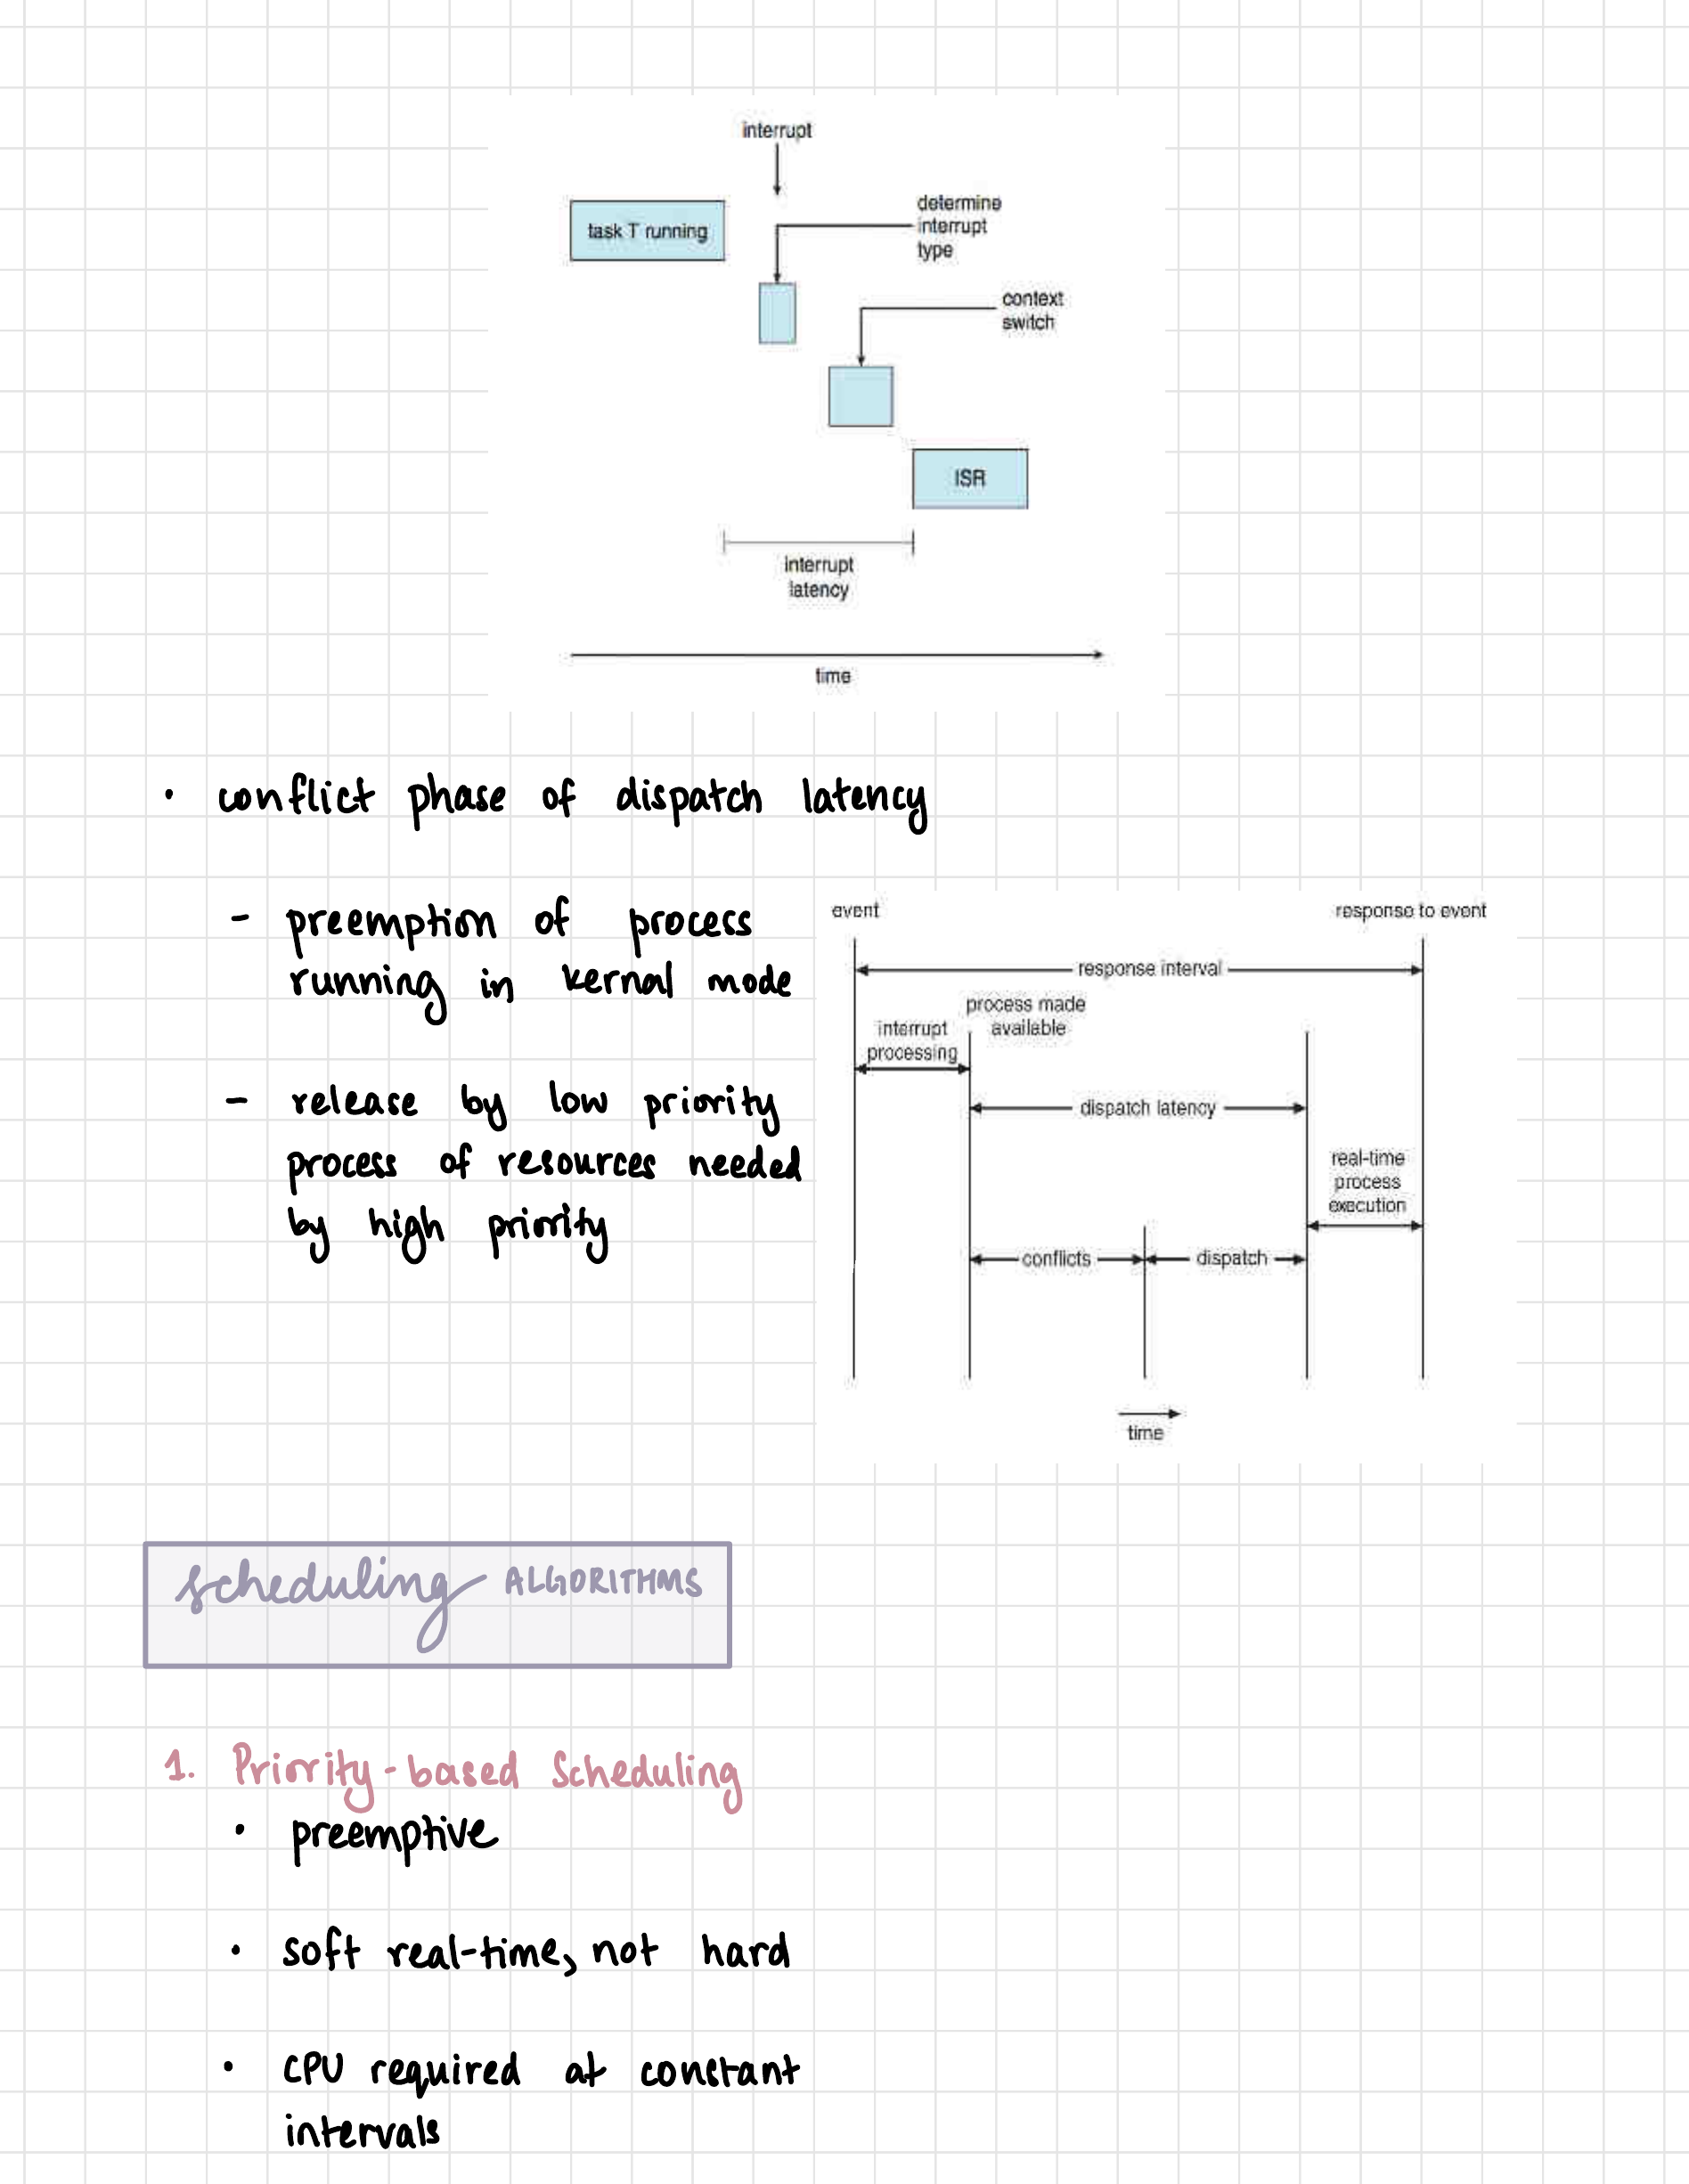 interrupt
task T running
determine
interrupt
type
context
switch
ISR
interrupt
latency
time
• conflict phase of dispatch latency
- preemption of process
running in kernal mode
- release by low priority
process of resources needed
by high priority
event
response to event
response interval
process made
available
interrupt
processing
dispatch latency
real-time
process
execution
conflicts
dispatch
time
scheduling ALGORITHMS
1. Priority-based Scheduling
• preemptive
• soft real-time, not hard
• CPU required at constant
intervals